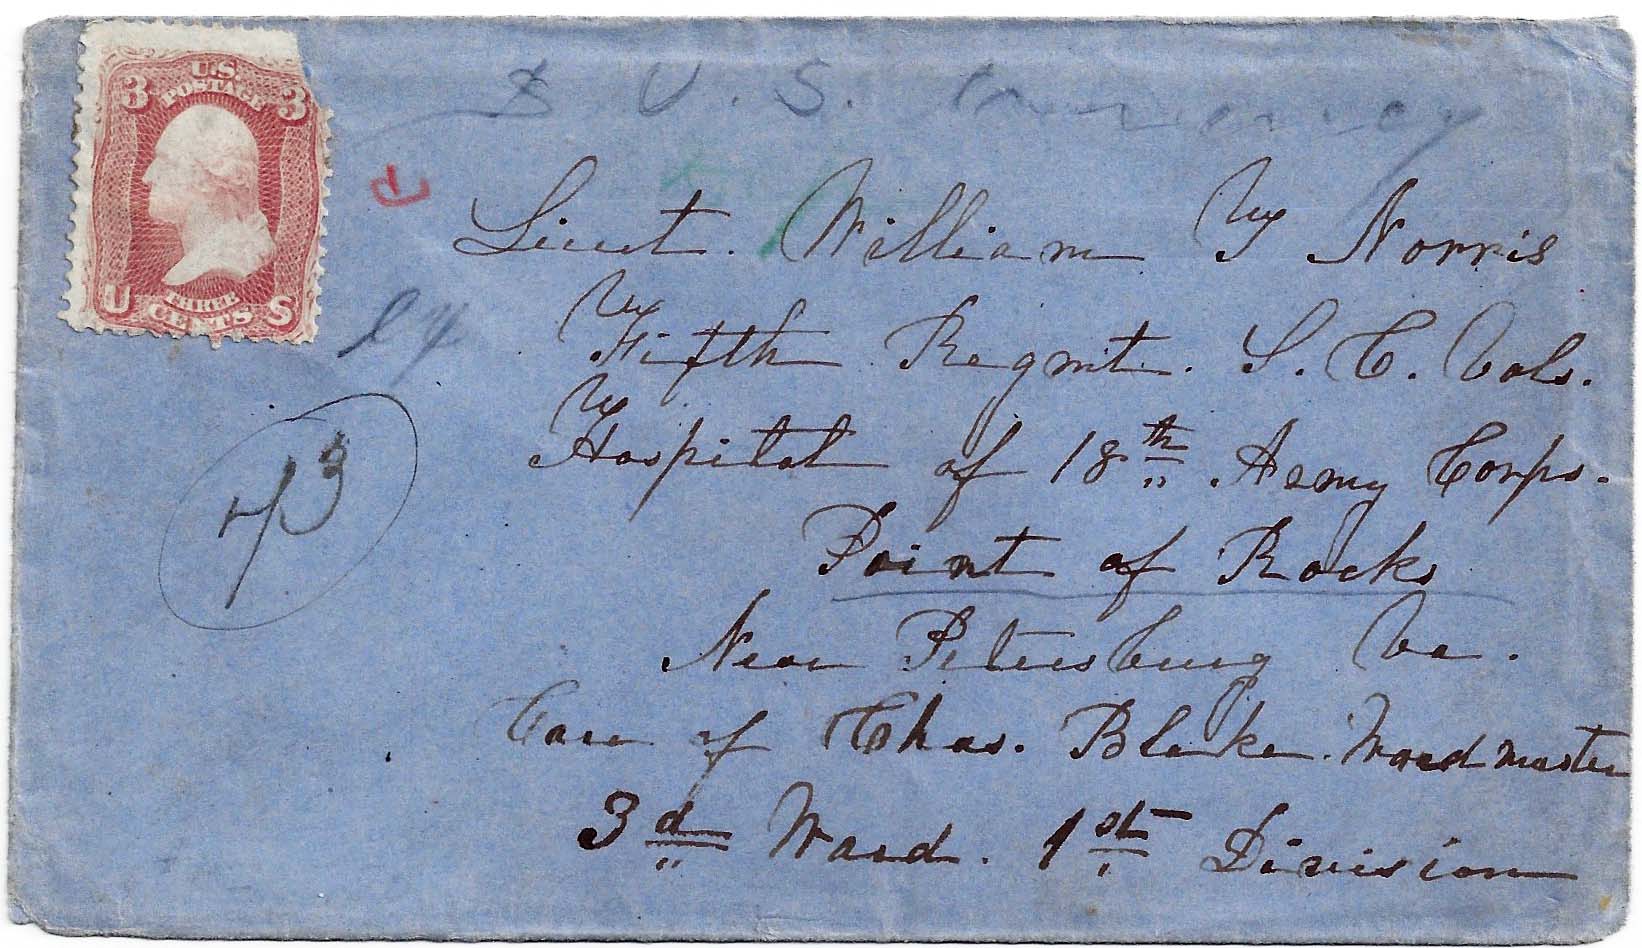 3 U.S. POSTAGE 3
U THREE CENTS S
$ U. S. Currency
Lieut. William H Norris
Fifth Regmt. S. C. Vols.
Hospital of 18th Army Corps.
Point of Rocks
Near Petersburg Va.
Care of Chas. Blake. Wardmaster
3d Ward. 1st Division